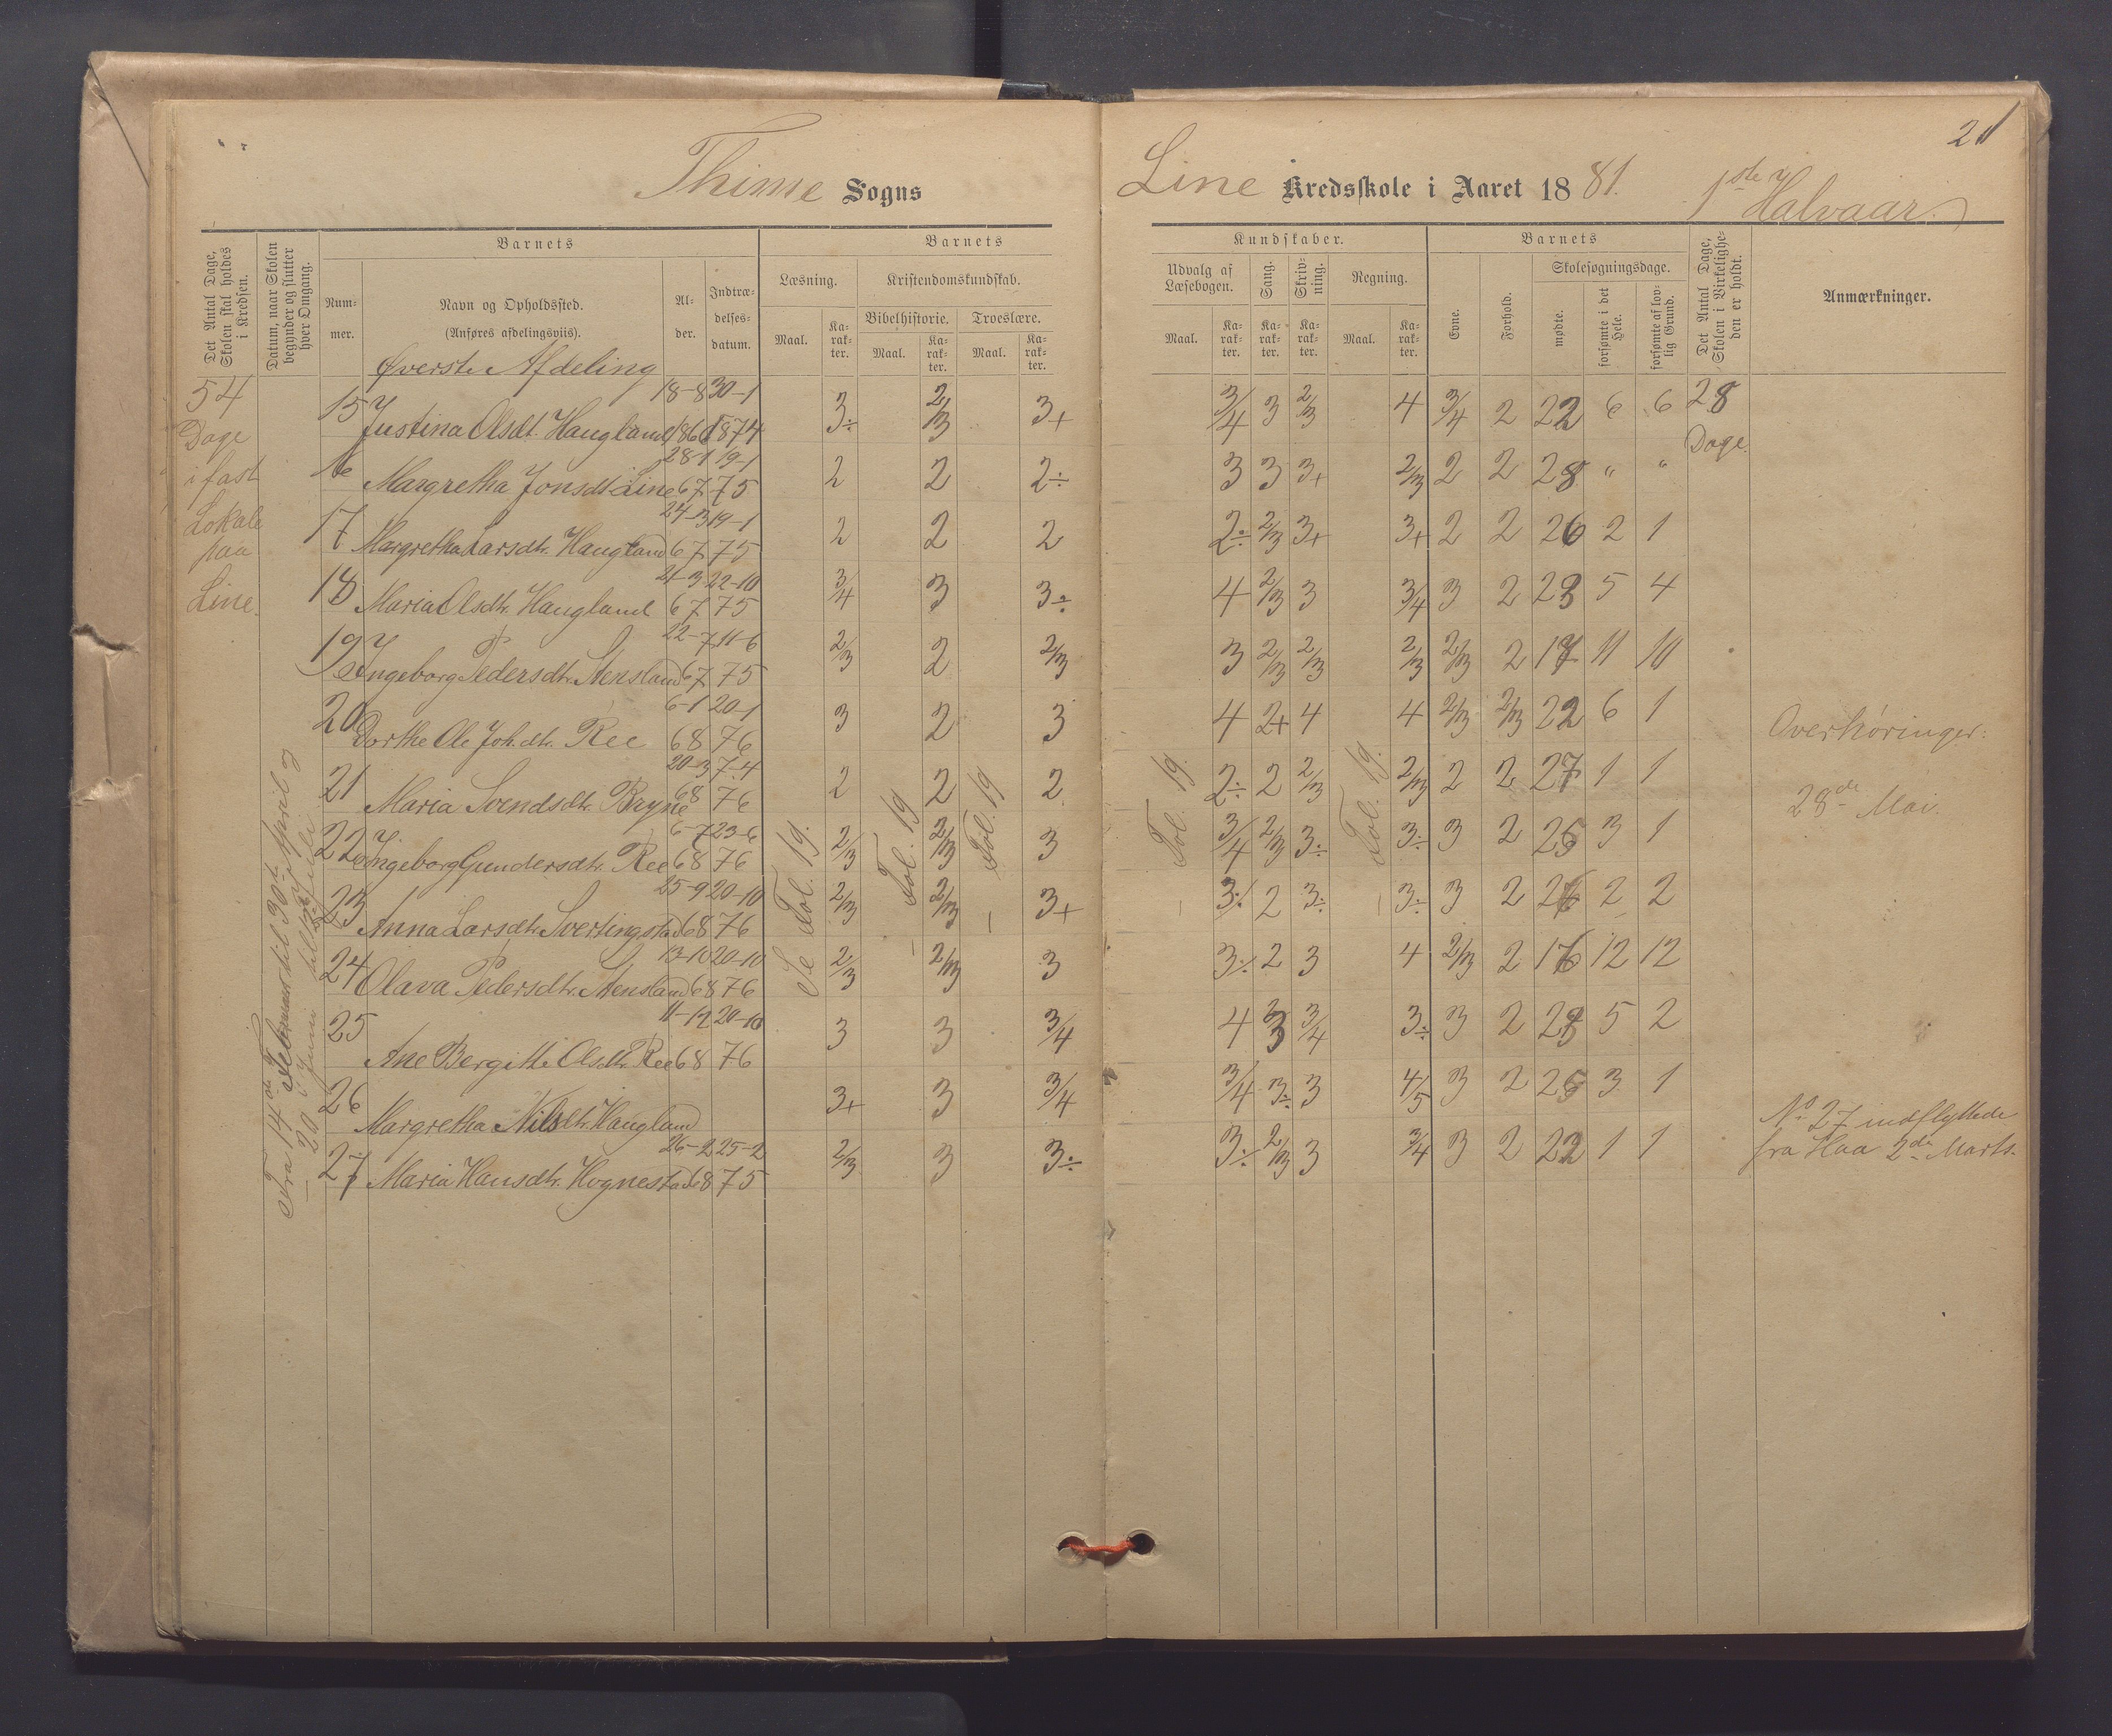 21
Thime Sogns
Line Kredsskole i Aaret 1881. 1ste Halvaar.
Det Antal Dage, Skolen skal holdes i Kredsen.
Datum, naar Skolen begynder og slutter hver Omgang.
Barnets
Nummer.
Navn og Opholdssted.
(Anføres afdelingsviis).
Alder.
Indtrædelsesdatum.
Barnets
Læsning.
Kristendomskundskab.
Bibelhistorie.
Troeslære.
Maal.
Karakter.
Maal.
Karakter.
Maal.
Karakter.
Kundskaber.
Udvalg af Læsebogen.
Sang.
Skrivning.
Regning.
Maal.
Karakter.
Karakter.
Karakter.
Maal.
Karakter.
Barnets
Evne.
Forhold.
Skolesøgningsdage.
mødte.
forsømte i det Hele.
forsømte af lovlig Grund.
Det Antal Dage, Skolen i Virkeligheden er holdt.
Anmærkninger.
Øverste Afdeling
54
Dage
i fast
Lokale
paa
Line.
Fra 14de Februar til 30te April og
— 20 Juni til 2 Juli
15 Justina Olsdt. Haugland 18-8 1866 30-1 1874 3÷ 2/3 3+ 3/4 3 2/3 4 3/4 2 22 6 6 28 Dage.
16 Margretha Jonsdt. Line 28-1 67 19-1 75 2 2 2÷ 3 3 3+ 2/3 2 2 28 " "
17 Margretha Larsdtr. Haugland 24-3 67 19-1 75 2 2 2 2÷ 2/3 3+ 3+ 2 2 26 2 1
18 Maria Olsdtr. Haugland 21-3 67 22-10 75 3/4 3 3÷ 4 2/3 3 3/4 3 2 23 5 4
19 Ingeborg Pedersdtr. Stensland 22-7 67 11-6 75 2/3 2 2/3 3 2/3 2/3 2/3 2/3 2 17 11 10
20 Dorthe Ole Joh.dtr. Ree 6-1 68 20-1 76 3 2 3 4 2+ 4 4 2/3 2/3 22 6 1
21 Maria Svendsdtr. Bryne 20-3 68 7-4 76 2 2 2 2÷ 2 2/3 2/3 2 2 27 1 1
22 Ingeborg Gundersdtr. Ree 6-7 68 23-6 76 2/3 2/3 3 3/4 2/3 3÷ 3÷ 3 2 25 3 1
23 Anna Larsdtr. Svertingstad 25-9 68 20-10 76 2/3 2/3 3+ 3÷ 2 3÷ 3÷ 3 2 26 2 2
24 Olava Pedersdtr. Stensland 13-10 68 20-10 76 2/3 2/3 3 3÷ 2 3 4 2/3 2 16 12 12
25 Ane Bergitte Olsdtr. Ree 11-12 68 20-10 76 3 3 3/4 4 3 3/4 3÷ 3 2 23 5 2
26 Margretha Nilsdtr. Haugland 3+ 3 3/4 3/4 3÷ 3 4/5 3 2 25 3 1
27 Maria Hansdtr. Hognestad 26-2 68 25-2 75 2/3 3 3÷ 3÷ 2/3 3 3/4 3 2 22 1 1
Se Fol. 19.
Fol. 19
Fol. 19
Fol. 19.
Fol. 19.
Overhøringer:
28de Mai.
No 27 indflyttede
fra Haa 2den Marts.